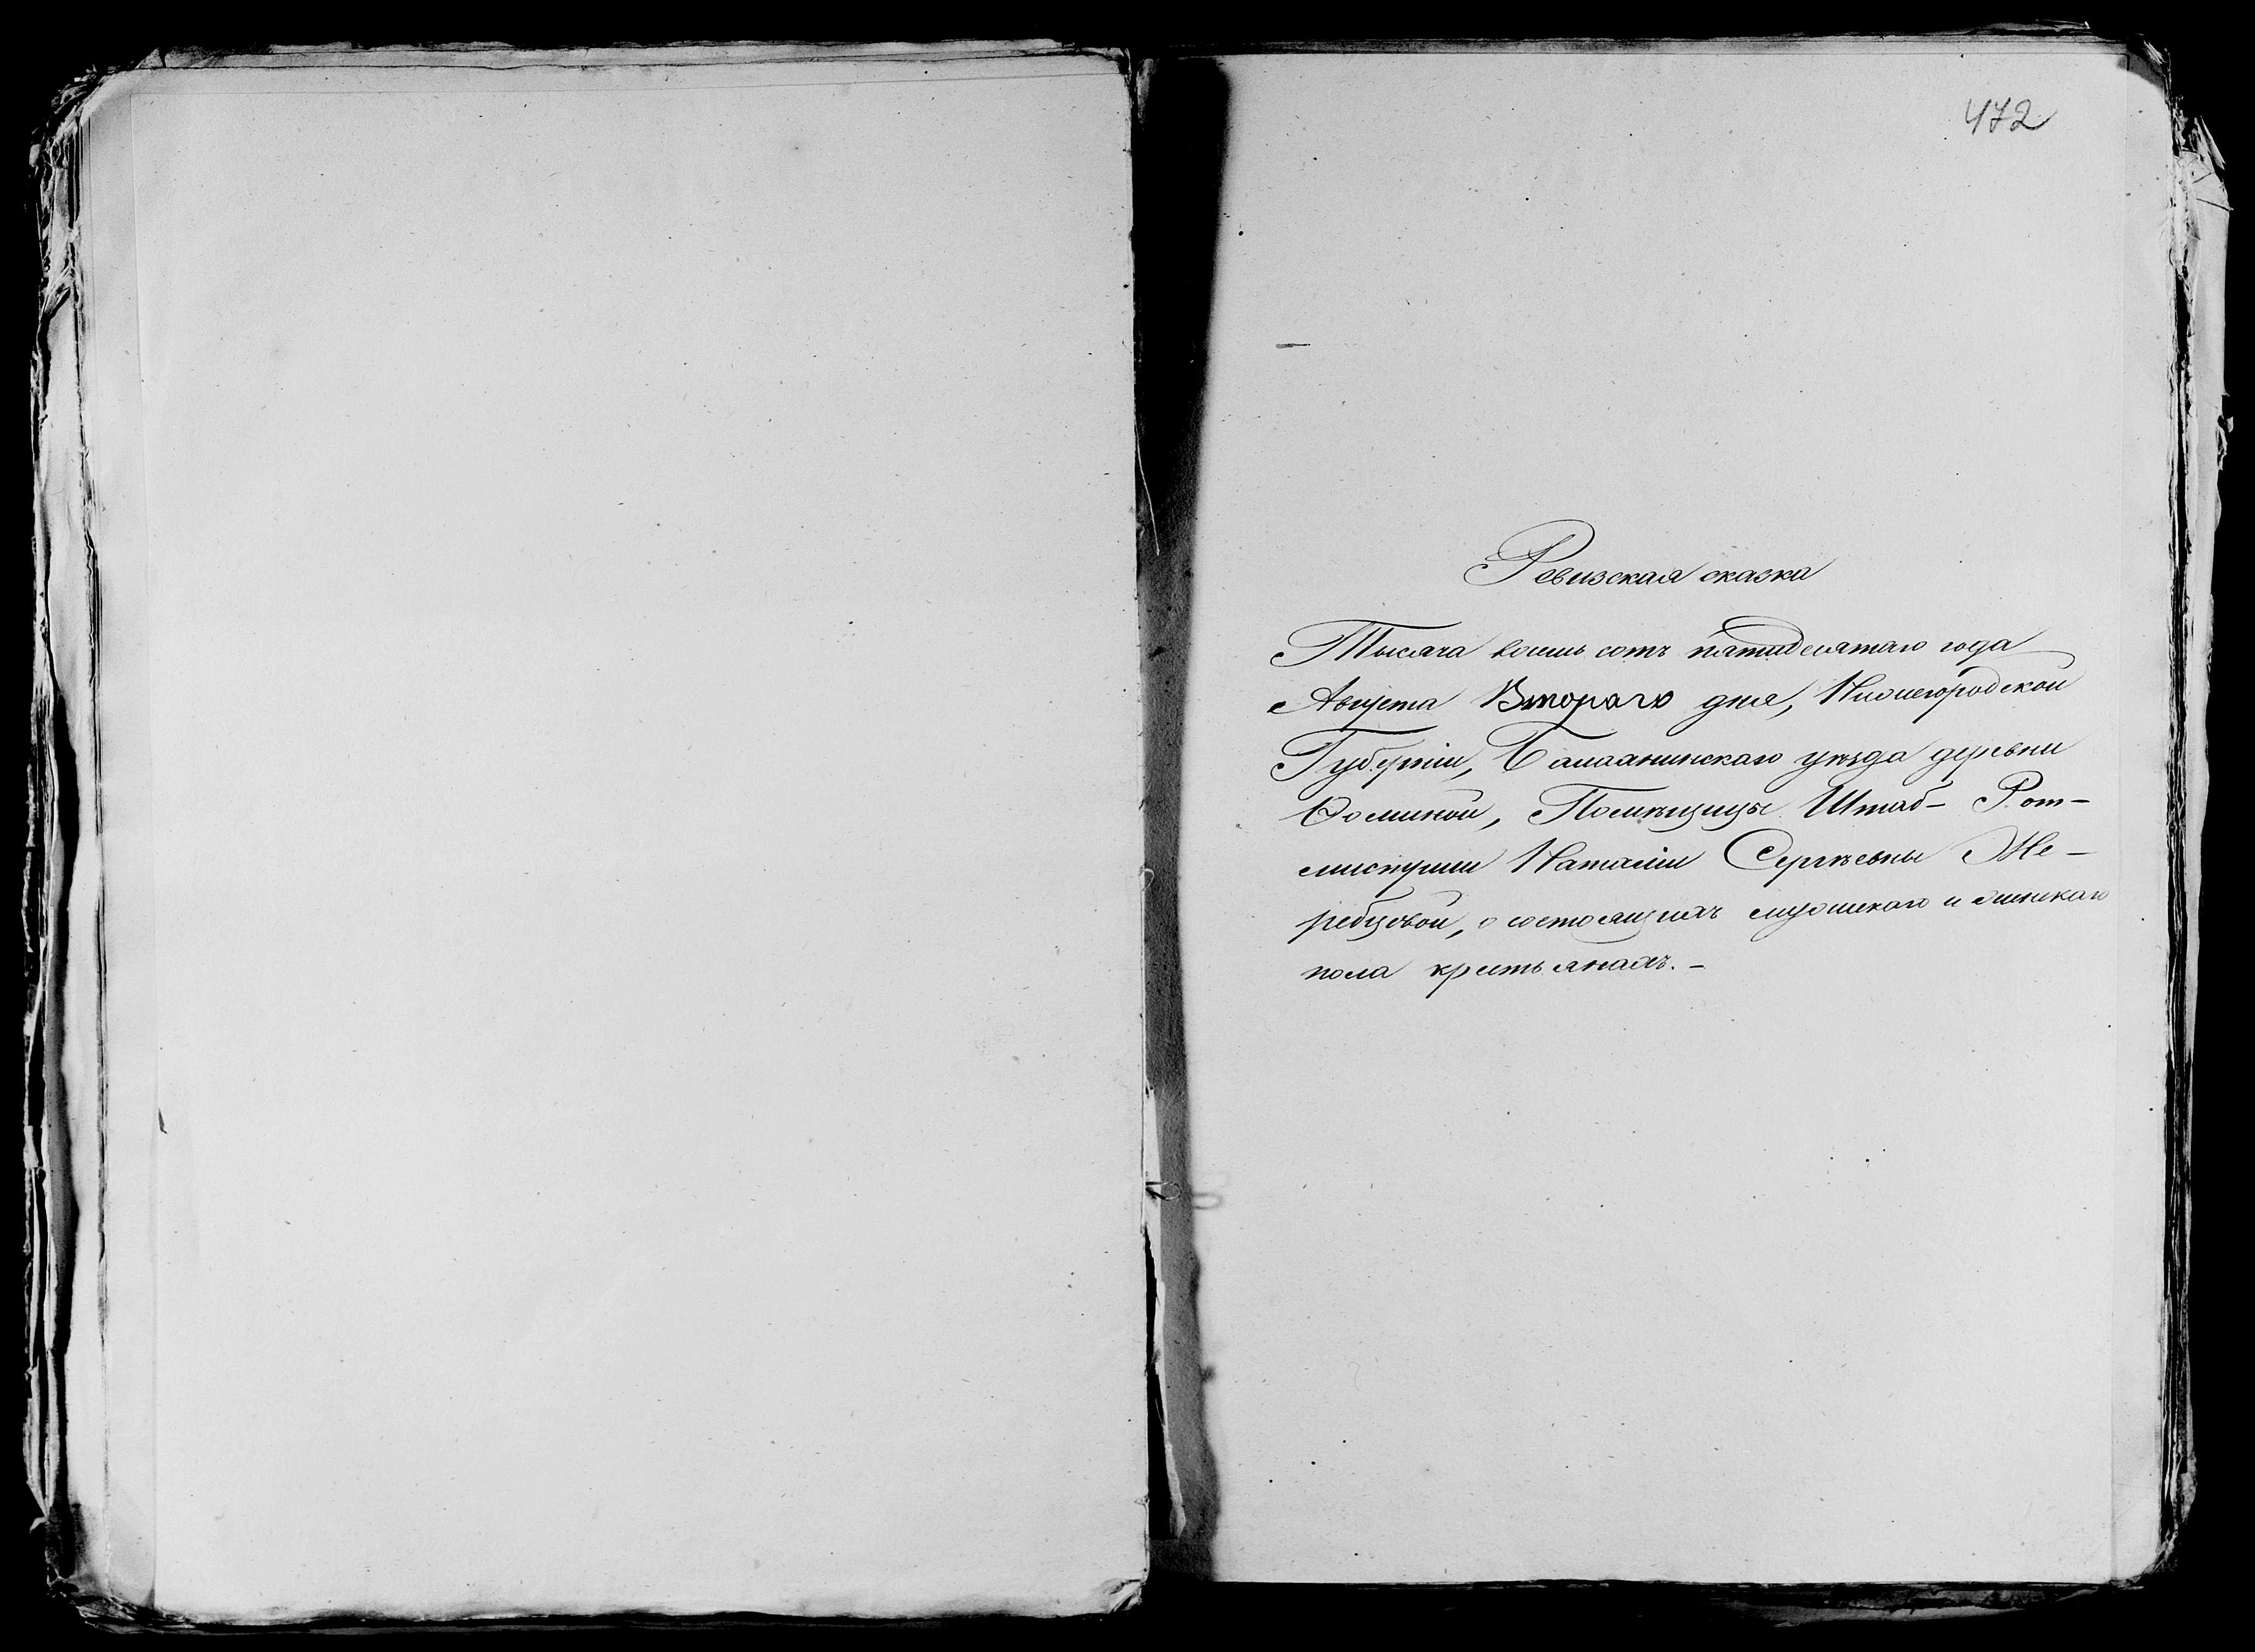 472
Ревизская сказка
Тысяча восемь сотъ пятидесятаго года
Августа Втораго дня, Нижегородской
Губерніи, Балахнинскаго уѣзда деревни
Ѳоминой, Помѣщицы Штаб- Рот-
мистрши Наталіи Сергѣевны Же-
ребцовой, о состоящихъ мужескаго и женскаго
пола крестьянахъ.-